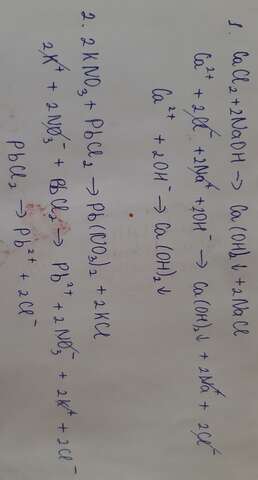 1. CaCl₂ + 2NaOH → Ca(OH)₂↓ + 2NaCl
Ca²⁺ + 2Cl⁻ + 2Na⁺ + 2OH⁻ → Ca(OH)₂↓ + 2Na⁺ + 2Cl⁻
Ca²⁺ + 2OH⁻ → Ca(OH)₂↓
2. 2KNO₃ + PbCl₂ → Pb(NO₃)₂ + 2KCl
2K⁺ + 2NO₃⁻ + PbCl₂ → Pb²⁺ + 2NO₃⁻ + 2K⁺ + 2Cl⁻
PbCl₂ → Pb²⁺ + 2Cl⁻